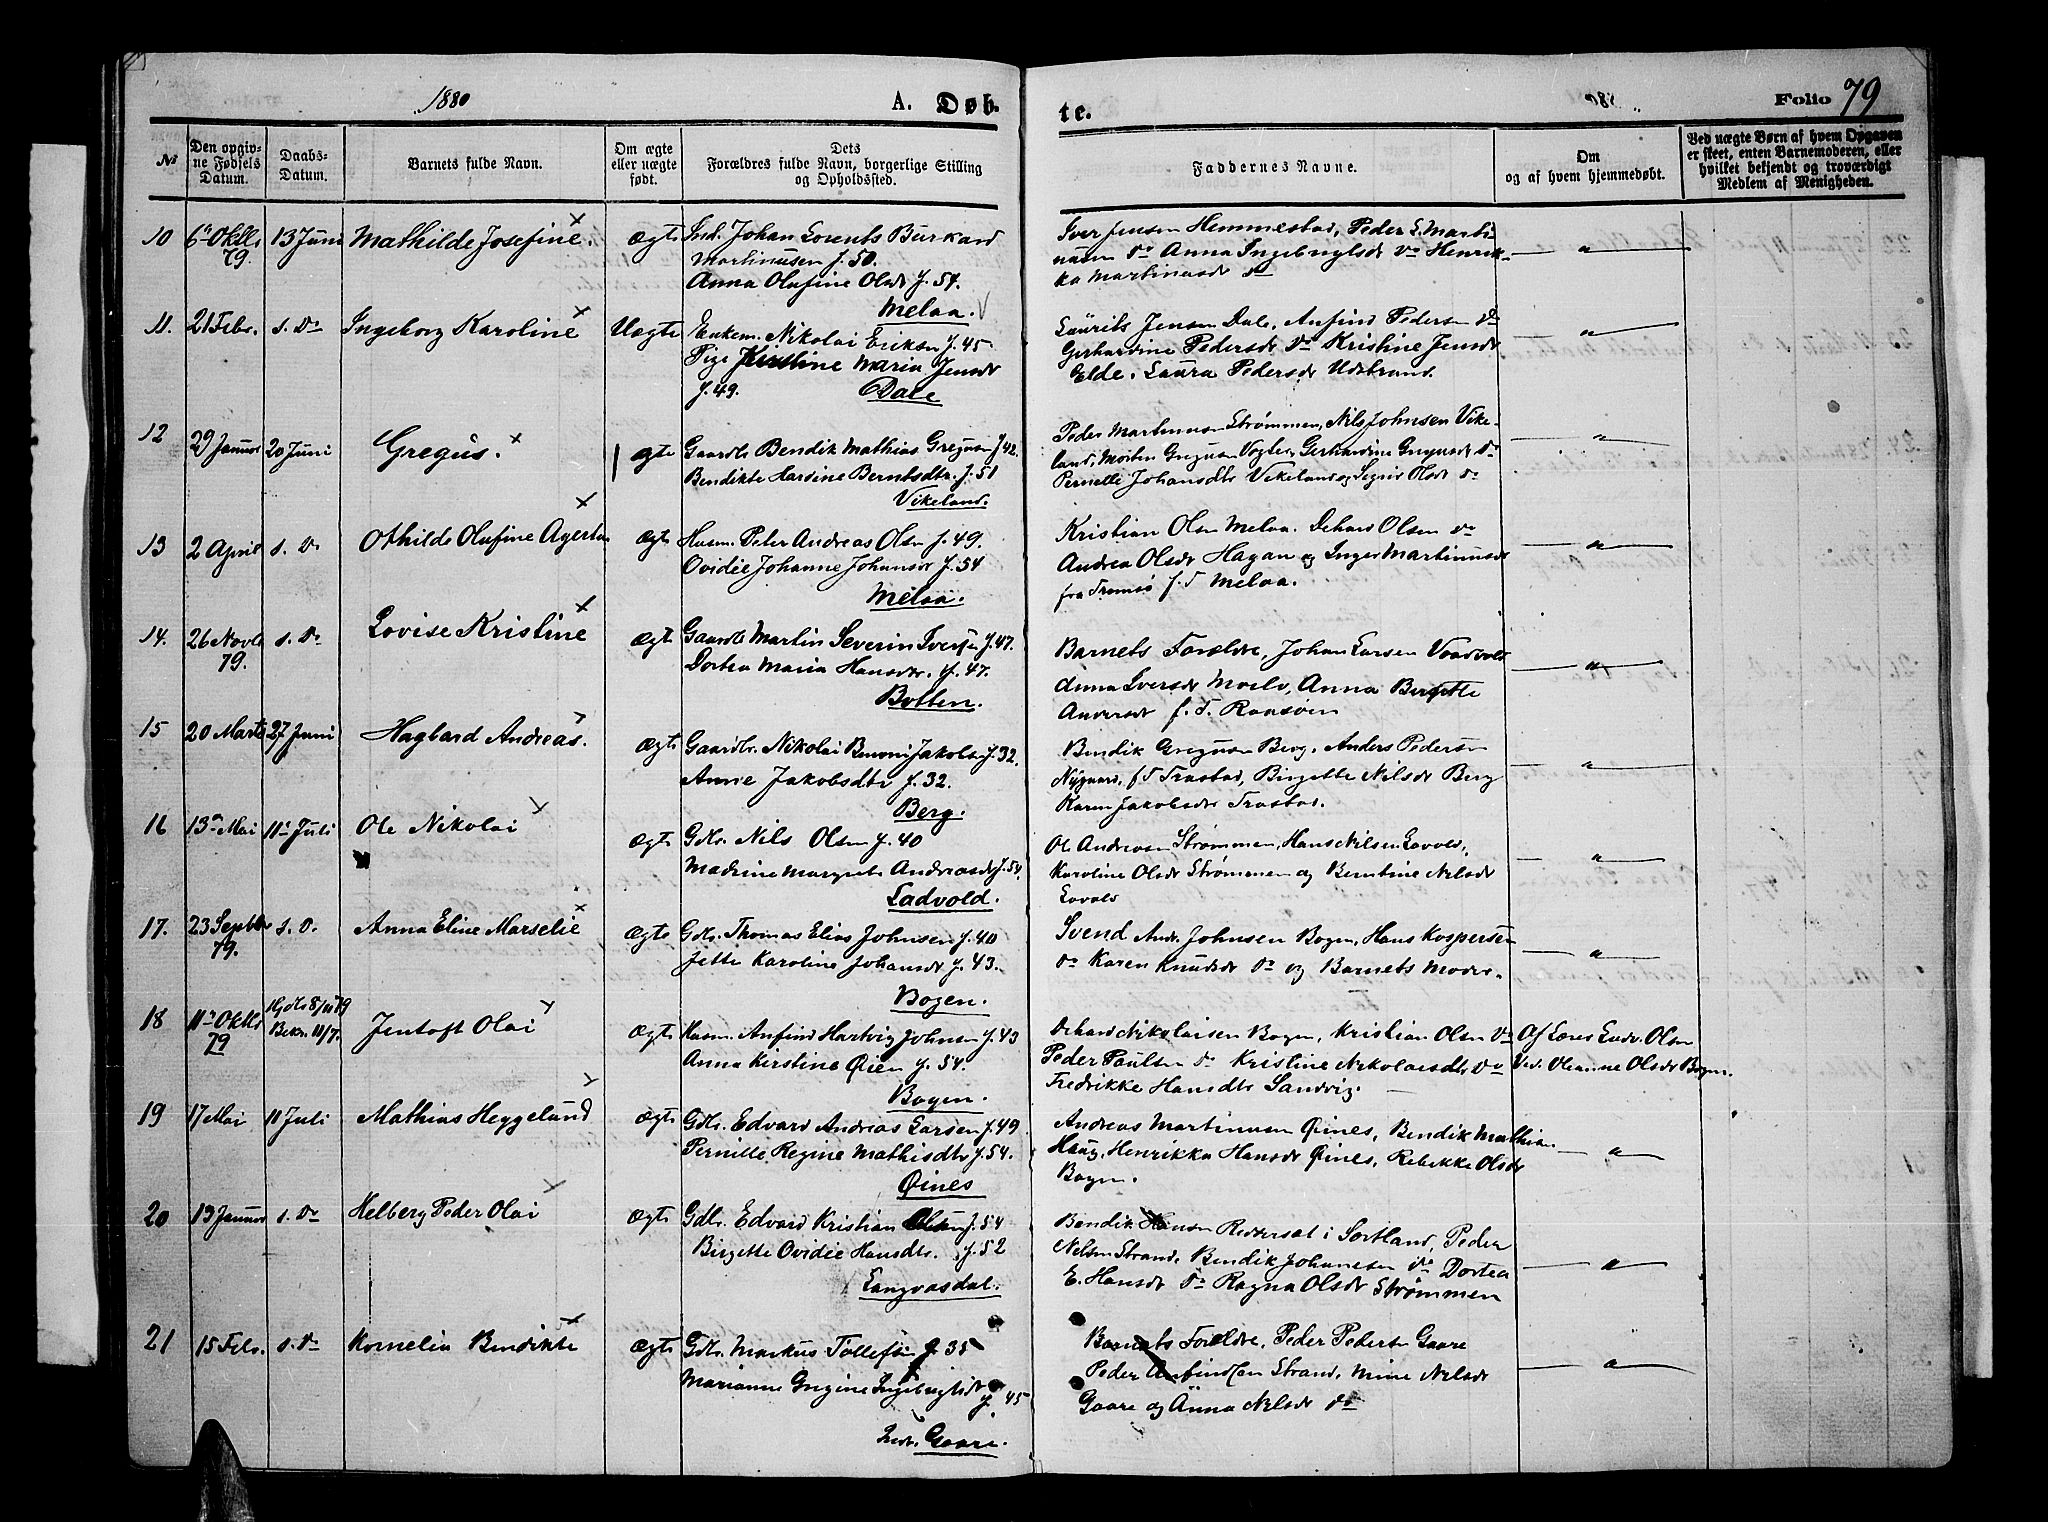 1880
A. Døb-
te.
Folio 79
№
Den opgiv-
ne Fødsels
Datum.
Daabs-
Datum.
Barnets fulde Navn.
Om ægte
eller uægte
født.
Dets
Forældres fulde Navn, borgerlige Stilling
og Opholdssted.
Faddernes Navne.
Om
og af hvem hjemmedøbt.
Ved uægte Børn af hvem Opgaven
er skeet, enten Barnemoderen, eller
hvilket bekjendt og troværdigt
Medlem af Menigheden.
10 6te Oktbr 13 Juni Mathilde Josefine. Ægte Ind. Johan Lorents Burkard
79. Martinusen f. 50.
Anna Olufine Olsdr f. 54.
Melaa.
Iver Jensen Hemmestad, Peder L. Marti-
nusen do Anna Ingebrigtsdr do Henrik-
ka Martinusdr do
11. 21 Febr. s. D. Ingeborg Karoline Uægte Enkem. Nikolai Eriksen f. 45
Pige Kristine Maria Jensdr
f. 49. Dale
Laurits Jensen Dale, Anfind Pedersen do
Gerhardine Pedersdr do Kristine Jensdr
Elde. Laura Pedersdr Udstrand.
12 29 Januar 20 Juni Gregus. Ægte Gaardbr Bendik Mathias Gregusen f. 42.
Bendikte Hardine Berntsdtr. f. 51
Vikeland.
Peder Martinusen Strømmen, Nils Johnsen Vike-
land, Morten Gregusen Vogter, Gerhardine Gregusdr do
Pernelle Johansdtr Vikeland og Signe Olsdr do
13 2 April s. D. Othilde Olufine Ægte Husm. Peter Andreas Olsen f. 49.
Ovidie Johanne Johansdr f. 54
Melaa.
Kristian Olsen Melaa. Dehard Olsen do
Andrea Olsdr Hagan og Inger Martinusdr
fra Tromsø f. T. Melaa.
14. 26 Novbr s. D. Lovise Kristine Ægte Gaardbr Martin Severin Iversen f. 47.
79. Dortea Maria Hansdtr. f. 47.
Botten.
Barnets Forældre, Johan Larsen
Anna Iversdr Moelv, Anna Bergitte
Andersdr f. T. Ronsøen
15 20 Marts 27 Juni Hagbard Andreas. Ægte Gaardbr. Nikolai Benoni Jakobsen f. 32.
Anne Jakobsdtr f. 32.
Berg.
Bendik Gregusen Berg, Anders Pedersen
Nygaard, f. T. Trastad, Birgette Nilsdr Berg
Karen Jakobsdtr Trastad.
16 13de Mai 11te Juli Ole Nikolai Ægte Gdbr. Nils Olsen f. 40
Madrine Margrete Andreasdr f. 54.
Ladvold.
Ole Andreasen Strømmen, Hans Nilsen Lavold,
Karoline Olsdr Strømmen og Berntine Nilsdr
Lavold
17. 23 Septbr s. D. Anna Eline Marselie Ægte Gdbr. Thomas Elias Johnsen f. 40
79. Jette Karoline Johansdr f. 43.
Bogen.
Svend Andr. Johnsen Bogen, Hans Kaspersen
do Karen Knudsdr do og Barnets Moder.
18 11te Oktbr Hjdbt 8/11 79 Jentoft Olai Ægte Husm. Anfind Hartvig Johnsen f. 43
79 Bekr. 11/7. Anna Kirstine Øien f. 54.
Bogen.
Dehard Nikolaisen Bogen, Kristian Olsen do
Peder Paulsen do Kristine Nikolaisdtr do
Fredrikke Hansdtr Sandvig
Af Lærer Ludv. Olsen
Ved. Oleanne Olsdr Bogen.
19 17 Mai 11 Juli Mathias Heggelund Ægte Gdbr. Edvard Andreas Larsen f. 49
Pernille Regine Mathisdtr f. 54.
Øines
Andreas Martinusen Øines, Bendik Mathisen
Haug, Henrikka Hansdr Øines, Rebekke Olsdr
Bogen.
20 13 Januar s. D. Helberg Peder Olai Ægte Gdbr. Edvard Kristian Olsen f. 54
Birgette Ovidie Hansdtr. f. 52
Langvasdal.
Bendik Hansen i Sortland, Peder
Nilsen Strand, Bendik Johansen do Dortea
E. Hansdr do Ragna Olsdr Strømmen
21 15 Febr. s. D. Kornelia Bendikte Ægte Gdbr. Markus Tollefsen f. 35
Marianne Gregine Ingebrigtsdr f. 45
Gaare.
Barnets Forældre, Peder Pedersen Gaare
Peder Anfindsen Strand, Mine Nilsdr
Gaare og Anna Nilsdr do